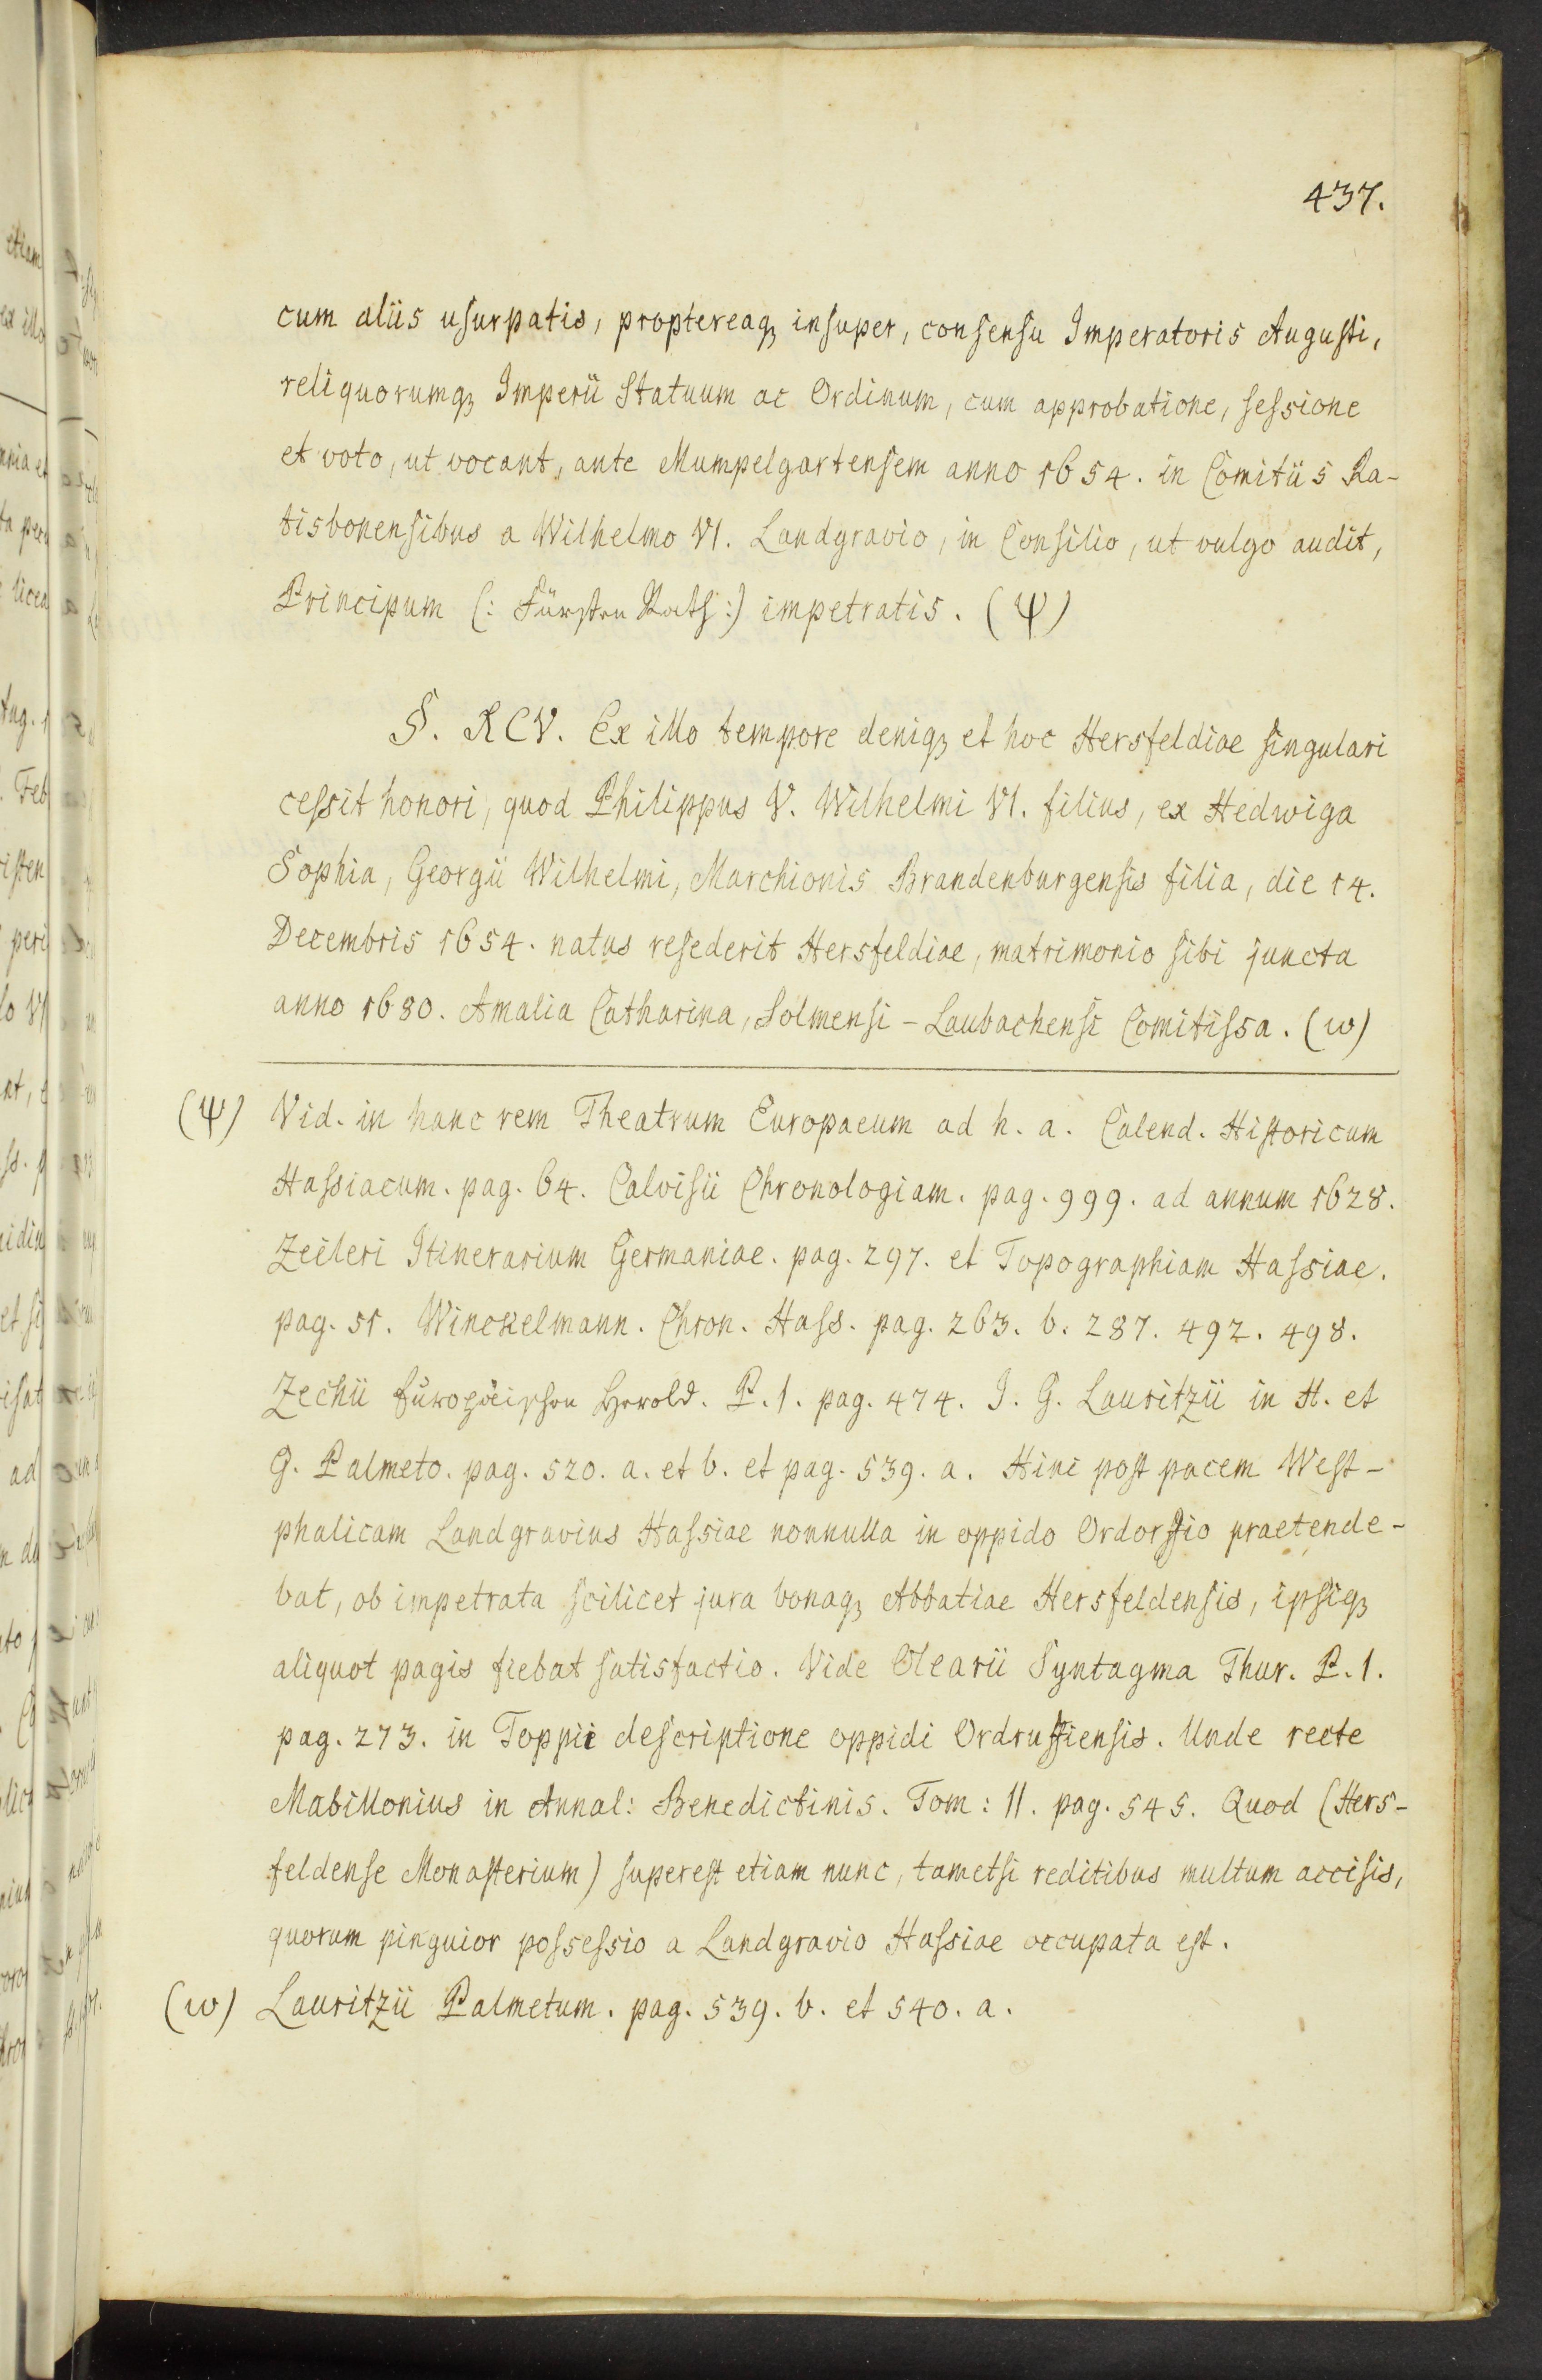 437.
cum aliis usurpatis, proptereaq3 insuper, consensu Imperatoris Augusti,
reliquorumq3 Imperii Statuum ac Ordinum, cum approbatione, sessione
et voto, ut vocant, ante Mumpelgartensem anno 1654. in Comitiis Ra-
tisbonensibus a Wilhelmo VI. Landgravio, in Consilio, ut vulgo audit,
Principum (: Fürsten Rath :) impetratis. (Ψ)
§. XCV. Ex illo tempore deniq3 et hoc Hersfeldiae singulari
cessit honori, quod Philippus V. Wilhelmi VI. filius, ex Hedwiga
Sophia, Georgii Wilhelmi, Marchionis Brandenburgensis filia, die 14.
Decembris 1654. natus resederit Hersfeldiae, matrimonio sibi juncta
anno 1680. Amalia Catharina, Solmensi - Laubachensi Comitissa. (ω)
(Ψ) Vid. in hanc rem Theatrum Europaeum ad h. a. Calend. Historicum
Hassiacum. pag. 64. Calvisii Chronologiam. pag. 999. ad annum 1628.
Zeileri Itinerarium Germaniae. pag. 297. et Topographiam Hassiae.
pag. 51. Winckelmann. Chron. Hass. pag. 263. b. 287. 492. 498.
Zechii Europäischen Herold. P. I. pag. 474. I. G. Lauritzii in H. et
G. Palmeto. pag. 520. a. et b. et pag. 539. a. Hinc post pacem West-
phalicam Landgravius Hassiae nonnulla in oppido Ordorffio praetende-
bat, ob impetrata scilicet jura bonaq3 Abbatiae Hersfeldensis, ipsiq3
aliquot pagis fiebat satisfactio. Vide Olearii Syntagma Thur. P. I.
pag. 273. in Toppii descriptione oppidi Ordruffiensis. Unde recte
Mabillonius in Annal: Benedictinis. Tom: II. pag. 545. Quod (Hers-
feldense Monasterium) superest etiam nunc, tametsi reditibus multum accisis,
quorum pinguior possessio a Landgravio Hassiae occupata est.
(ω) Lauritzii Palmetum. pag. 539. b. et 540. a.